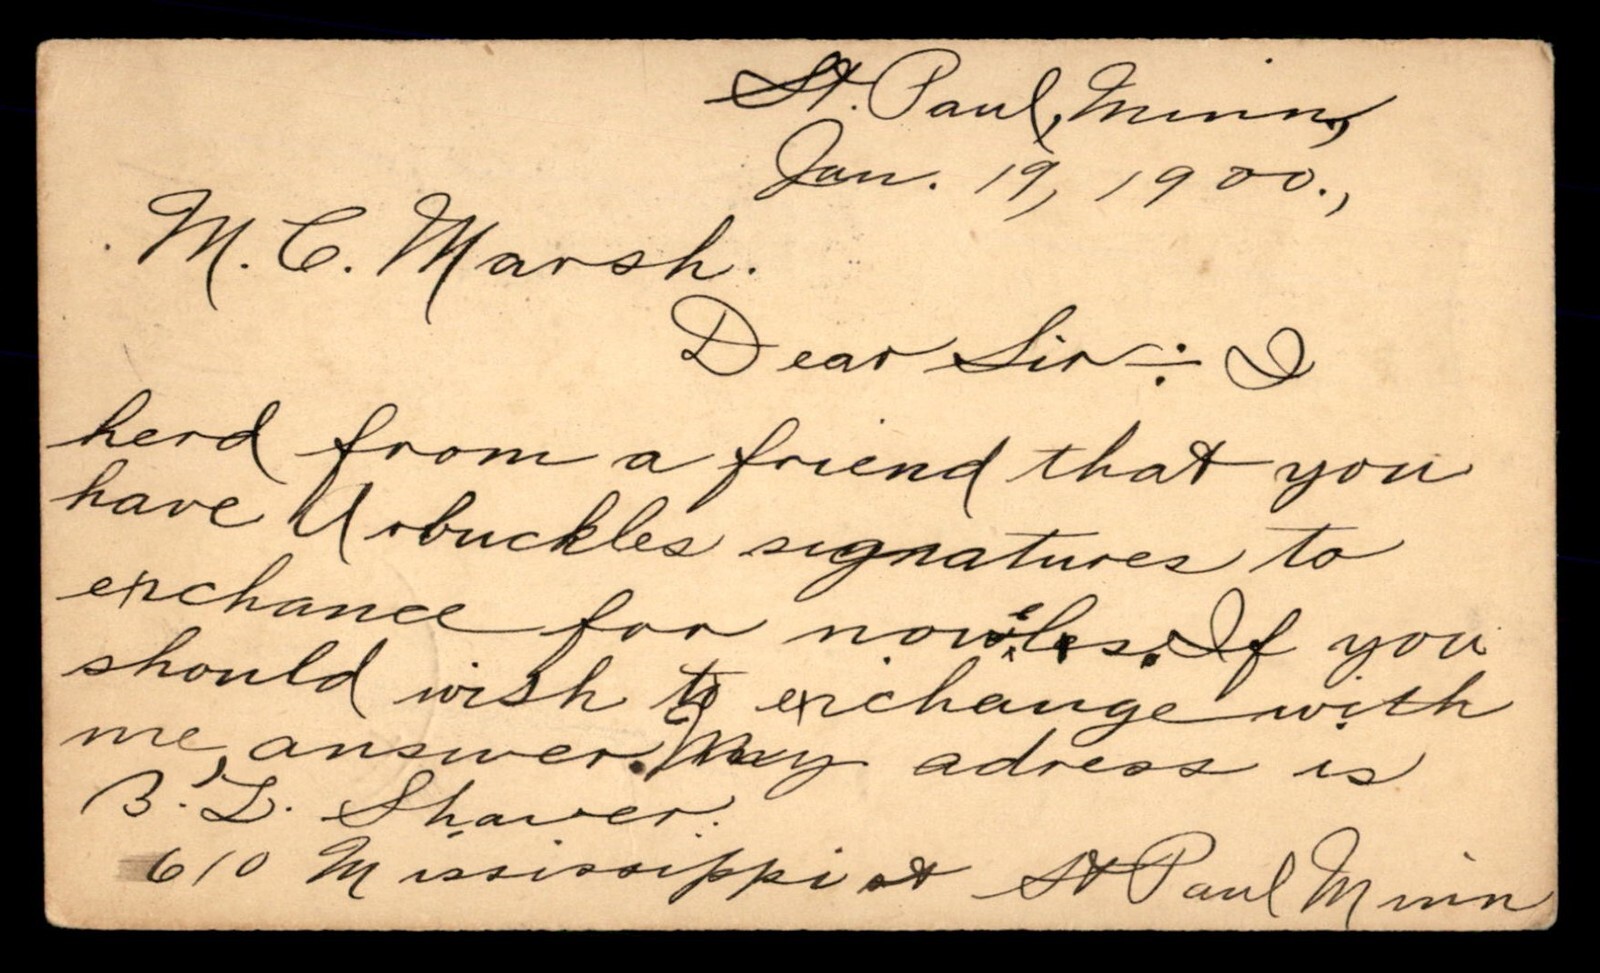 St. Paul, Minn,
Jan. 19, 1900.,
M. C. Marsh.
Dear Sir:- I
herd from a friend that you
have Arbuckles signatures to
exchance for novels. If you
should wish to exchange with
me, answer. My adress is
B. L. Shaver.
610 Mississippi st St Paul Minn